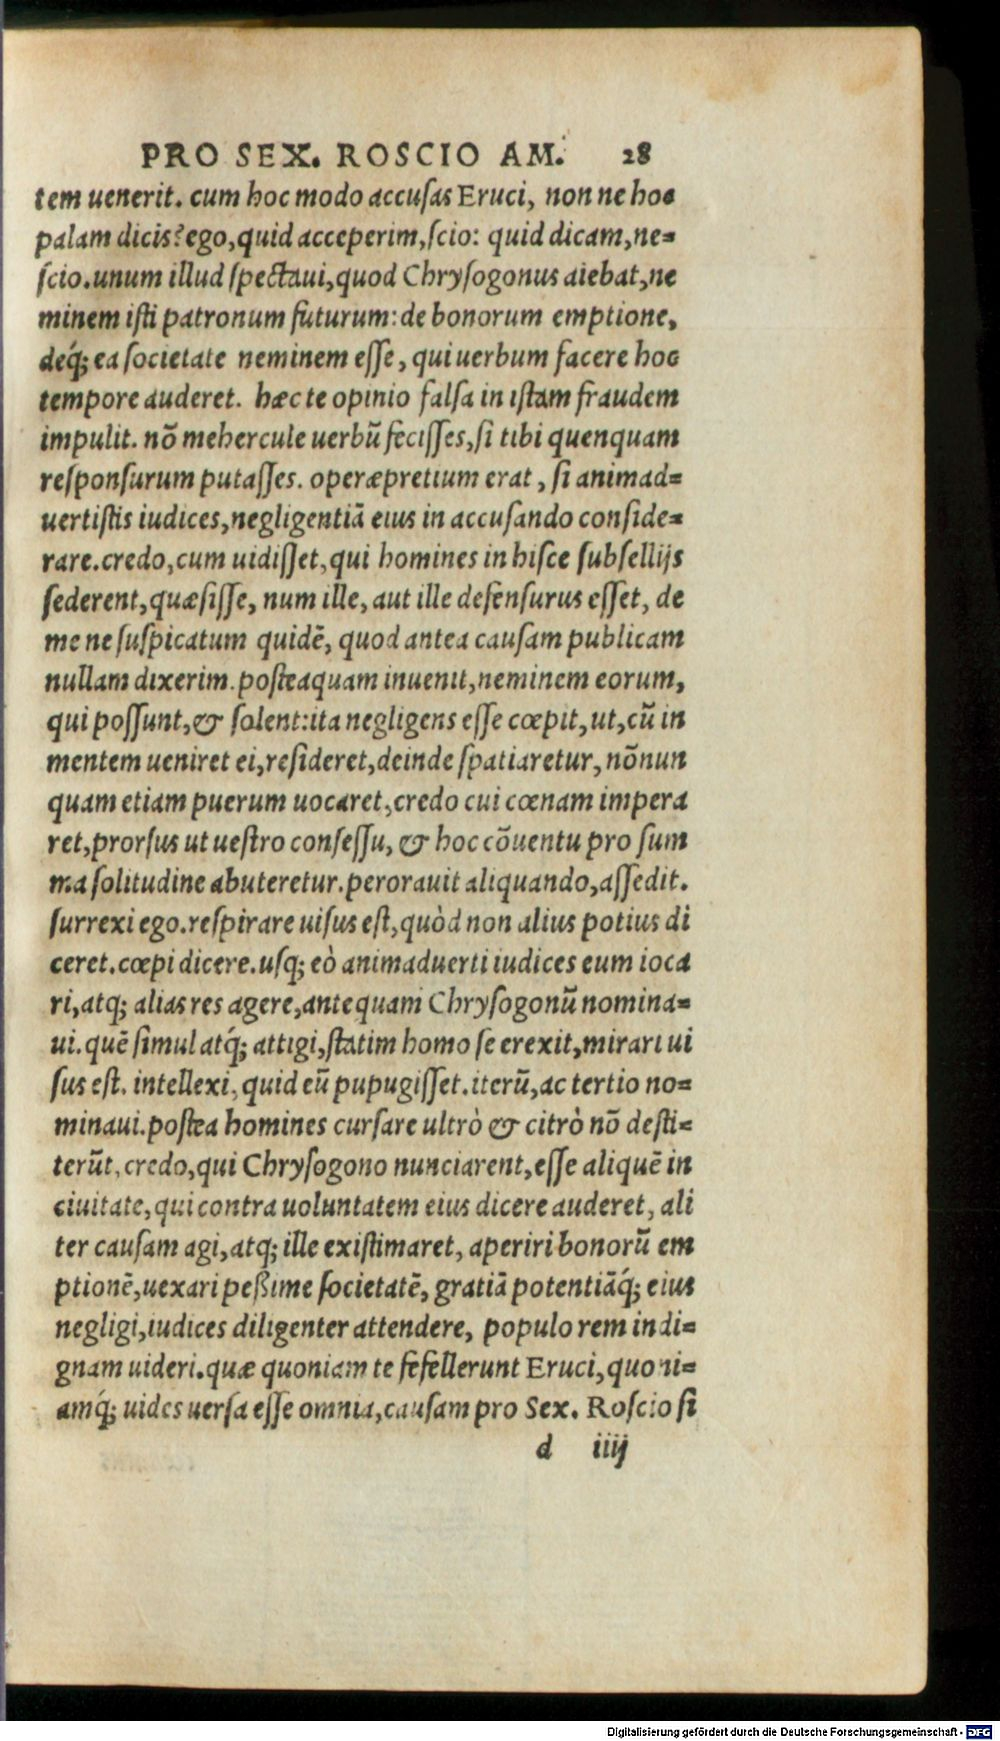 PRO SEX. ROSCIO AM. 28
tem uenerit. cum hoc modo accuſas Eruci, non ne hoc
palam dicis? ego, quid acceperim, ſcio: quid dicam, ne=
ſcio. unum illud ſpectaui, quod Chryſogonus aiebat, ne
minem iſti patronum futurum: de bonorum emptione,
deq́; ea ſocietate neminem eſſe, qui uerbum facere hoc
tempore auderet. hæc te opinio falſa in iſtam fraudem
impulit. nõ mehercule uerbũ feciſſes, ſi tibi quenquam
reſponſurum putaſſes. operæpretium erat, ſi animad=
uertiſtis iudices, negligentiã eius in accuſando conſide=
rare. credo, cum uidiſſet, qui homines in hiſce ſubſellijs
ſederent, quæſiſſe, num ille, aut ille defenſurus eſſet, de
me ne ſuſpicatum quidẽ, quod antea cauſam publicam
nullam dixerim. poſteaquam inuenit, neminem eorum,
qui poſſunt, & ſolent: ita negligens eſſe cœpit, ut, cũ in
mentem ueniret ei, reſideret, deinde ſpatiaretur, nõnun
quam etiam puerum uocaret, credo cui cœnam impera
ret, prorſus ut ueſtro conſeſſu, & hoc cõuentu pro ſum
ma ſolitudine abuteretur. perorauit aliquando, aſſedit.
ſurrexi ego. reſpirare uiſus eſt, quòd non alius potius di
ceret. cœpi dicere. uſq; eò animaduerti iudices eum ioca
ri, atq; alias res agere, antequam Chryſogonũ nomina=
ui. quẽ ſimul atq́; attigi, ſtatim homo ſe erexit, mirari ui
ſus eſt. intellexi, quid eũ pupugiſſet. iterũ, ac tertio no=
minaui. poſtea homines curſare ultrò & citrò nõ deſti=
terũt, credo, qui Chryſogono nunciarent, eſſe aliquẽ in
ciuitate, qui contra uoluntatem eius dicere auderet, ali
ter cauſam agi, atq; ille exiſtimaret, aperiri bonorũ em
ptionẽ, uexari peßime ſocietatẽ, gratiã potentiãq́; eius
negligi, iudices diligenter attendere, populo rem indi=
gnam uideri. quæ quoniam te fefellerunt Eruci, quoni=
amq́; uides uerſa eſſe omnia, cauſam pro Sex. Roſcio ſi
d iiij
Digitalisierung gefördert durch die Deutsche Forschungsgemeinschaft - DFG